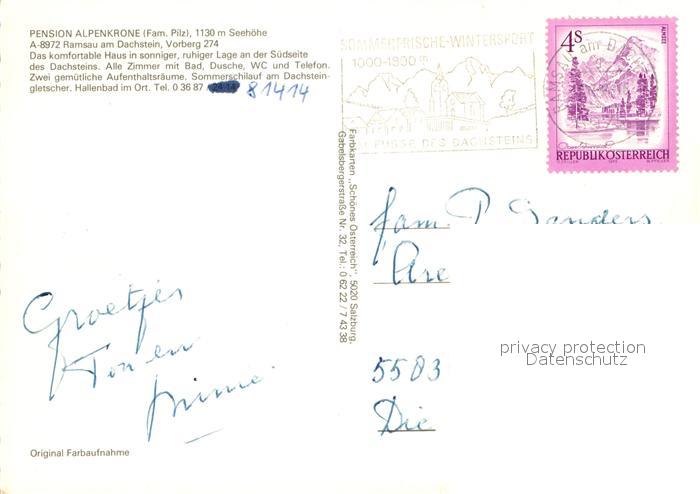 PENSION ALPENKRONE (Fam. Pilz), 1130 m Seehöhe
A-8972 Ramsau am Dachstein, Vorberg 274
Das komfortable Haus in sonniger, ruhiger Lage an der Südseite
des Dachsteins. Alle Zimmer mit Bad, Dusche, WC und Telefon.
Zwei gemütliche Aufenthaltsräume. Sommerschilauf am Dachstein-
gletscher. Hallenbad im Ort. Tel. 0 36 87 81414
SOMMERFRISCHE-WINTERSPORT
1000-1300 m
FUSSE DES DACHSTEINS
4s
ALMSEE
REPUBLIK ÖSTERREICH
Farbkarten „Schönes Österreich", 5020 Salzburg,
Gabelsbergerstraße Nr. 32, Tel.: 0 62 22 / 7 43 38
fam. P Sanders
Are
5583
Die
Groetjes
Ton en
Mime
privacy protection
Datenschutz
Original Farbaufnahme